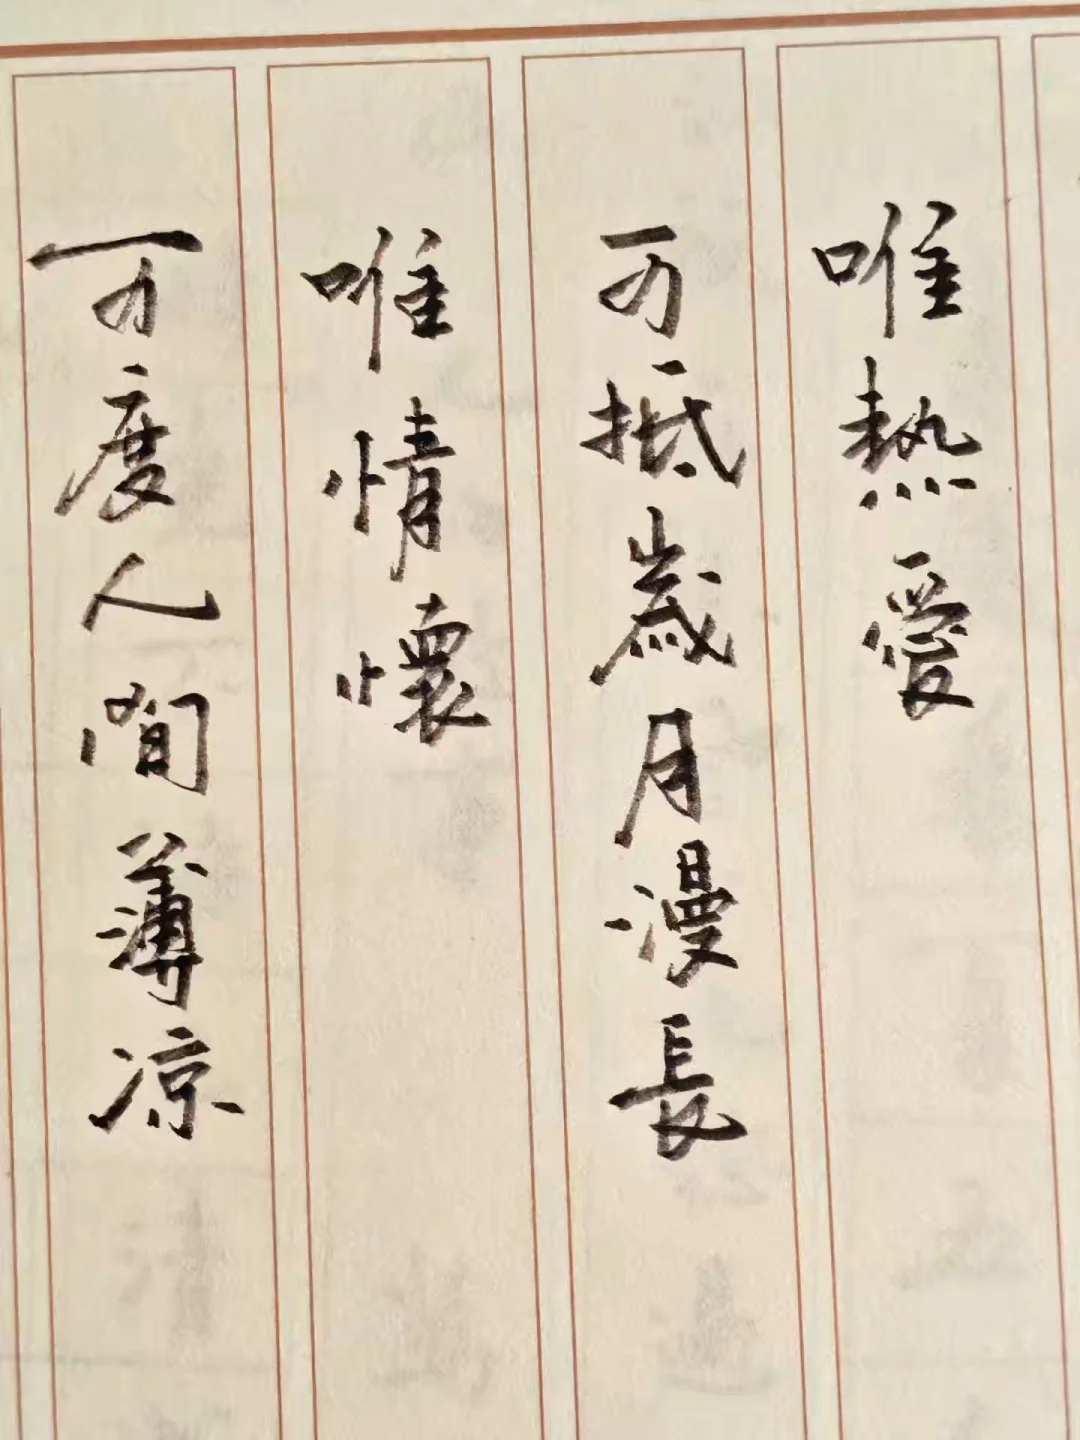 唯熱愛
可抵歲月漫長
唯情懷
可度人間薄凉